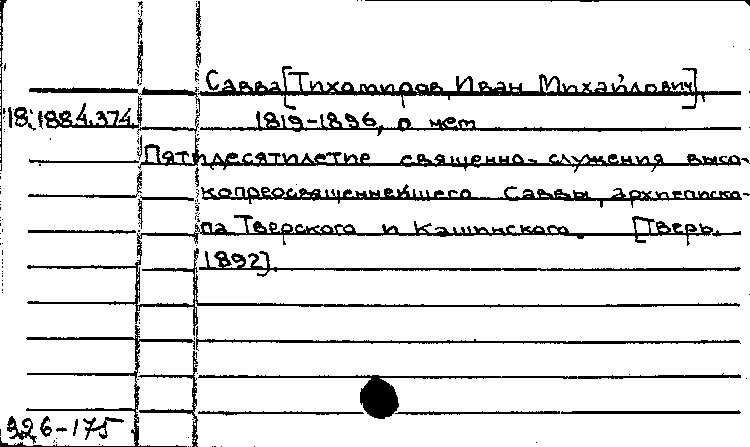 Савва [Тихомиров, Иван Михайлович],
18.188.4.374. 1819-1896, о нем
Пятидесятилетие священно-служения высо-
копреосвященнейшего Саввы, архиеписко-
па Тверского и Кашинского. [Тверь,
1892].
926-175